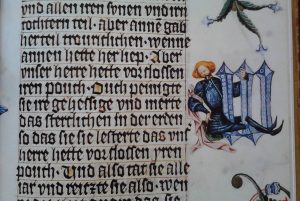 und allen iren sonen und iren
tochtern teil. Aber annen gab
her teil trouriclichen. wenne
annen hette her liep. Aber
unser herre hette vorslossen
iren pouch. Ouch peinigte
sie ire gehessige und merte
das sterclichen in der erden
so das sie sie lesterte das unser
herre hette vorslossen iren
pouch. Und also tat sie alle
iar und reiczte sie also. wen